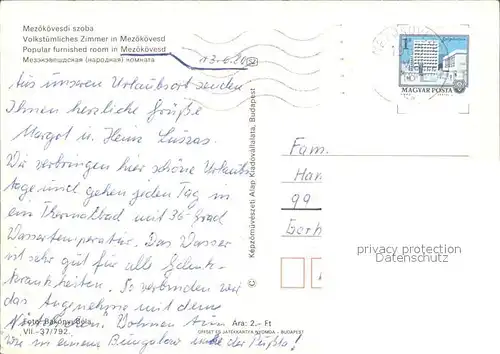 Mezőkövesdi szoba
Volkstümliches Zimmer in Mezőkövesd
Popular furnished room in Mezőkövesd
Мезэкэвешдская (народная) комната
Aus unserem Urlaubsort senden
Ihnen herzliche Grüße
Margot u. Heinz
Wir verbringen hier schöne Urlaubs
tage und gehen jeden Tag in
ein Thermalbad mit 36 Grad
Wassertemperatur. Das Wasser
ist sehr gut für alle Gelenk-
krankheiten. So verbinden wir
das Angenehme mit dem
Nützlichen. Wohnen tun
wir in einem Bungalow mitten der Pußta!
VII.-37/792.
Ára: 2.- Ft
OFSET ÉS JÁTÉKKÁRTYA NYOMDA - BUDAPEST
Képzőművészeti Alap Kiadóvállalata, Budapest
1 Ft
MAGYAR POSTA
Fam.
Han
99
Gerh
privacy protection
Datenschutz